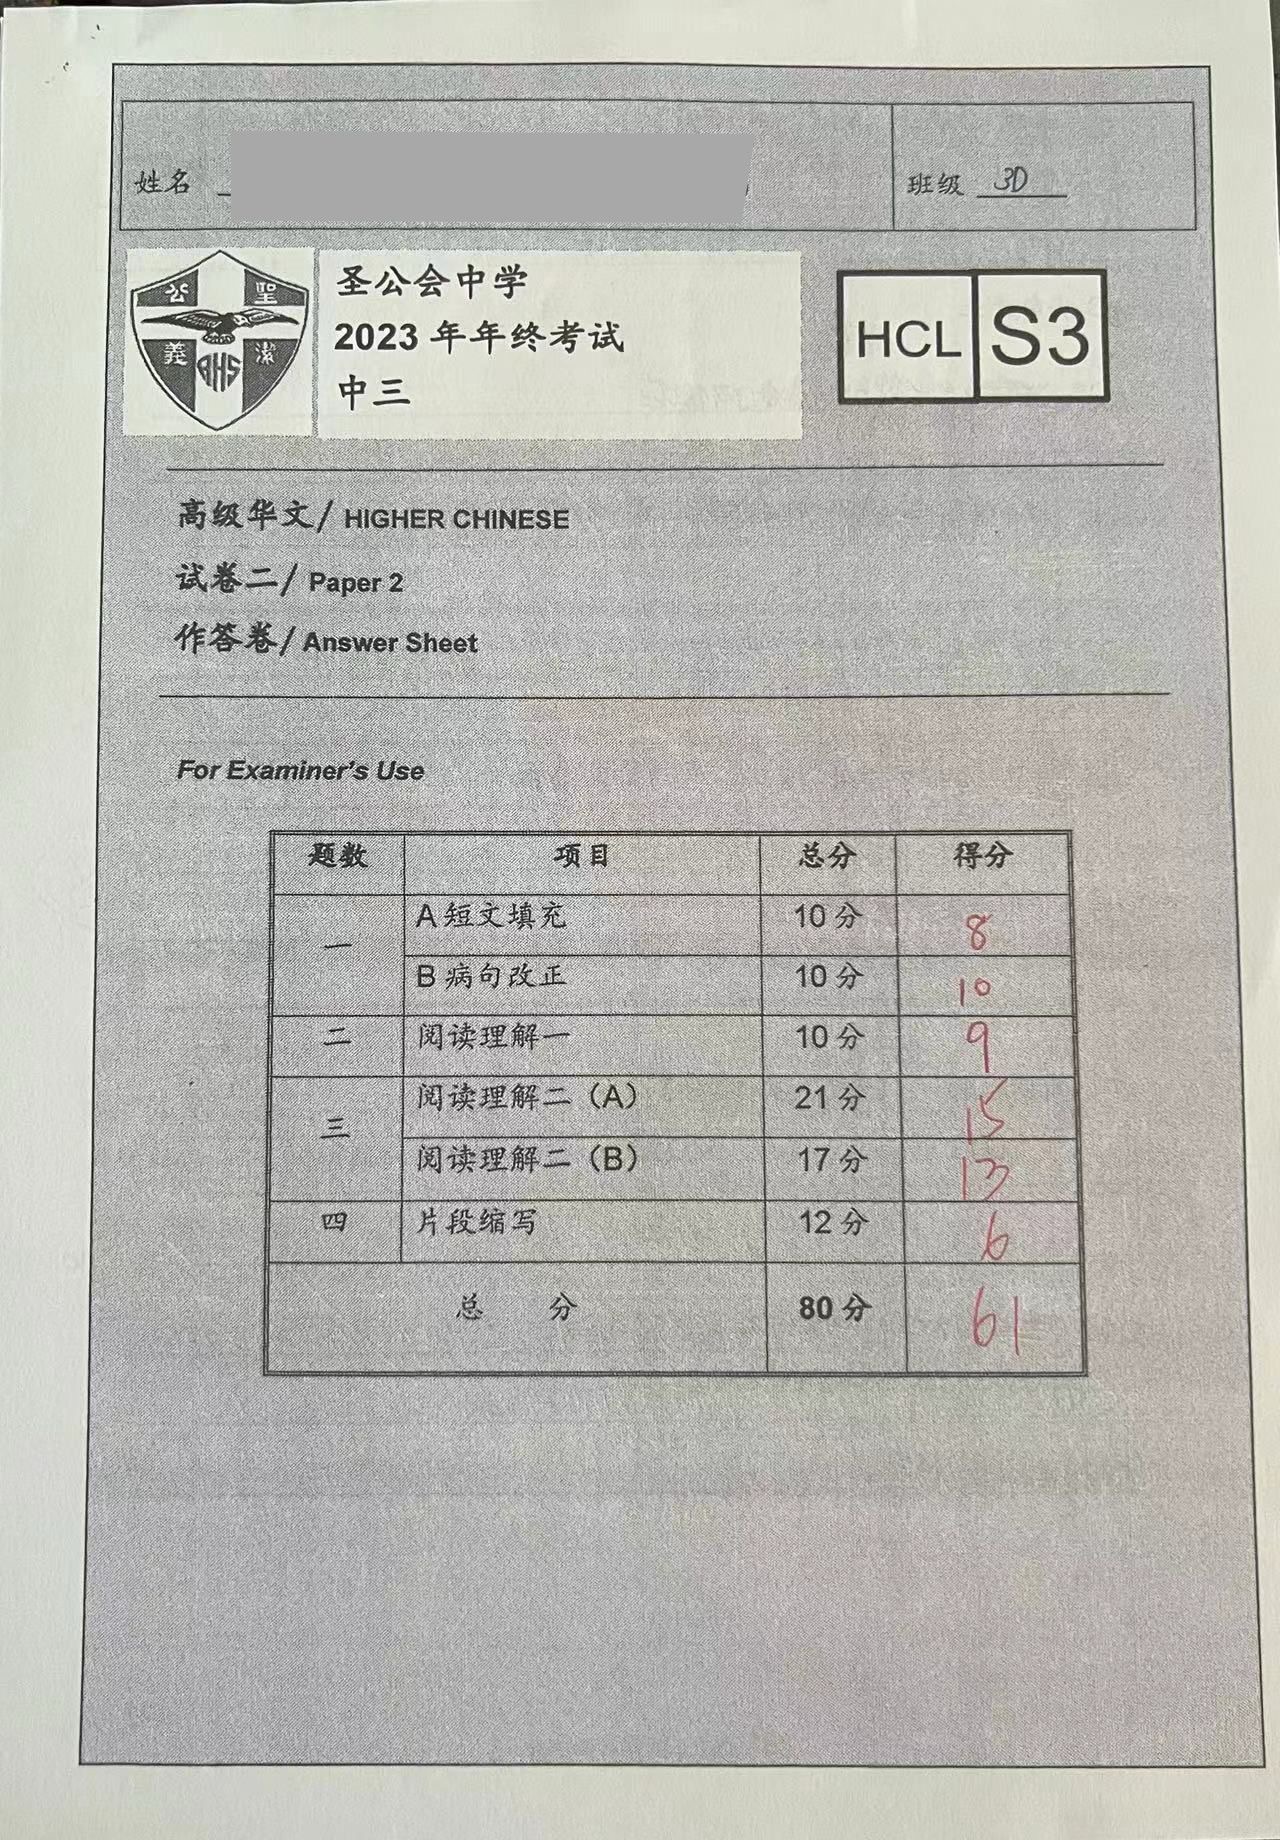 姓名
班级 3D
公 聖
義 潔
BHS
圣公会中学
2023 年年终考试
中三
HCL S3
高级华文/ HIGHER CHINESE
试卷二/ Paper 2
作答卷/ Answer Sheet
For Examiner's Use
题数 项目 总分 得分
一 A 短文填充 10 分 8
B 病句改正 10 分 10
二 阅读理解一 10 分 9
三 阅读理解二（A） 21 分 15
阅读理解二（B） 17 分 13
四 片段缩写 12 分 6
总 分 80 分 61